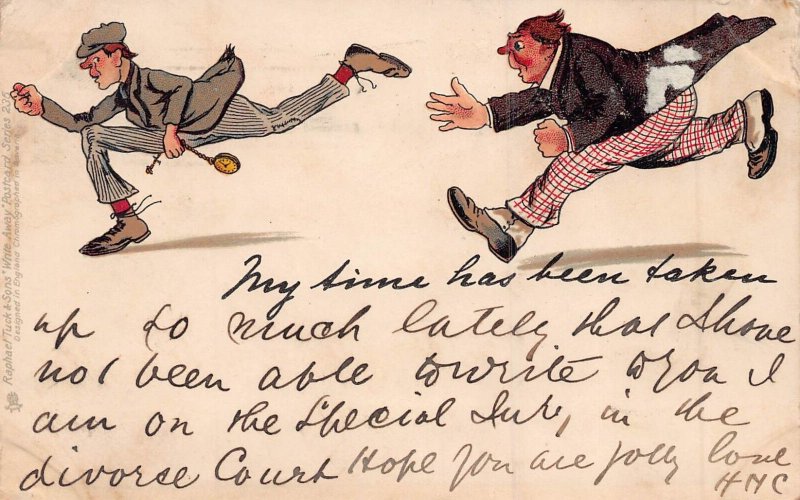 My time has been taken
up so much lately that I have
not been able to write to you I
am on the Special Jury, in the
divorce Court Hope you are jolly love
HMC
Raphael Tuck & Sons' "Write Away" Postcard Series
Designed in England